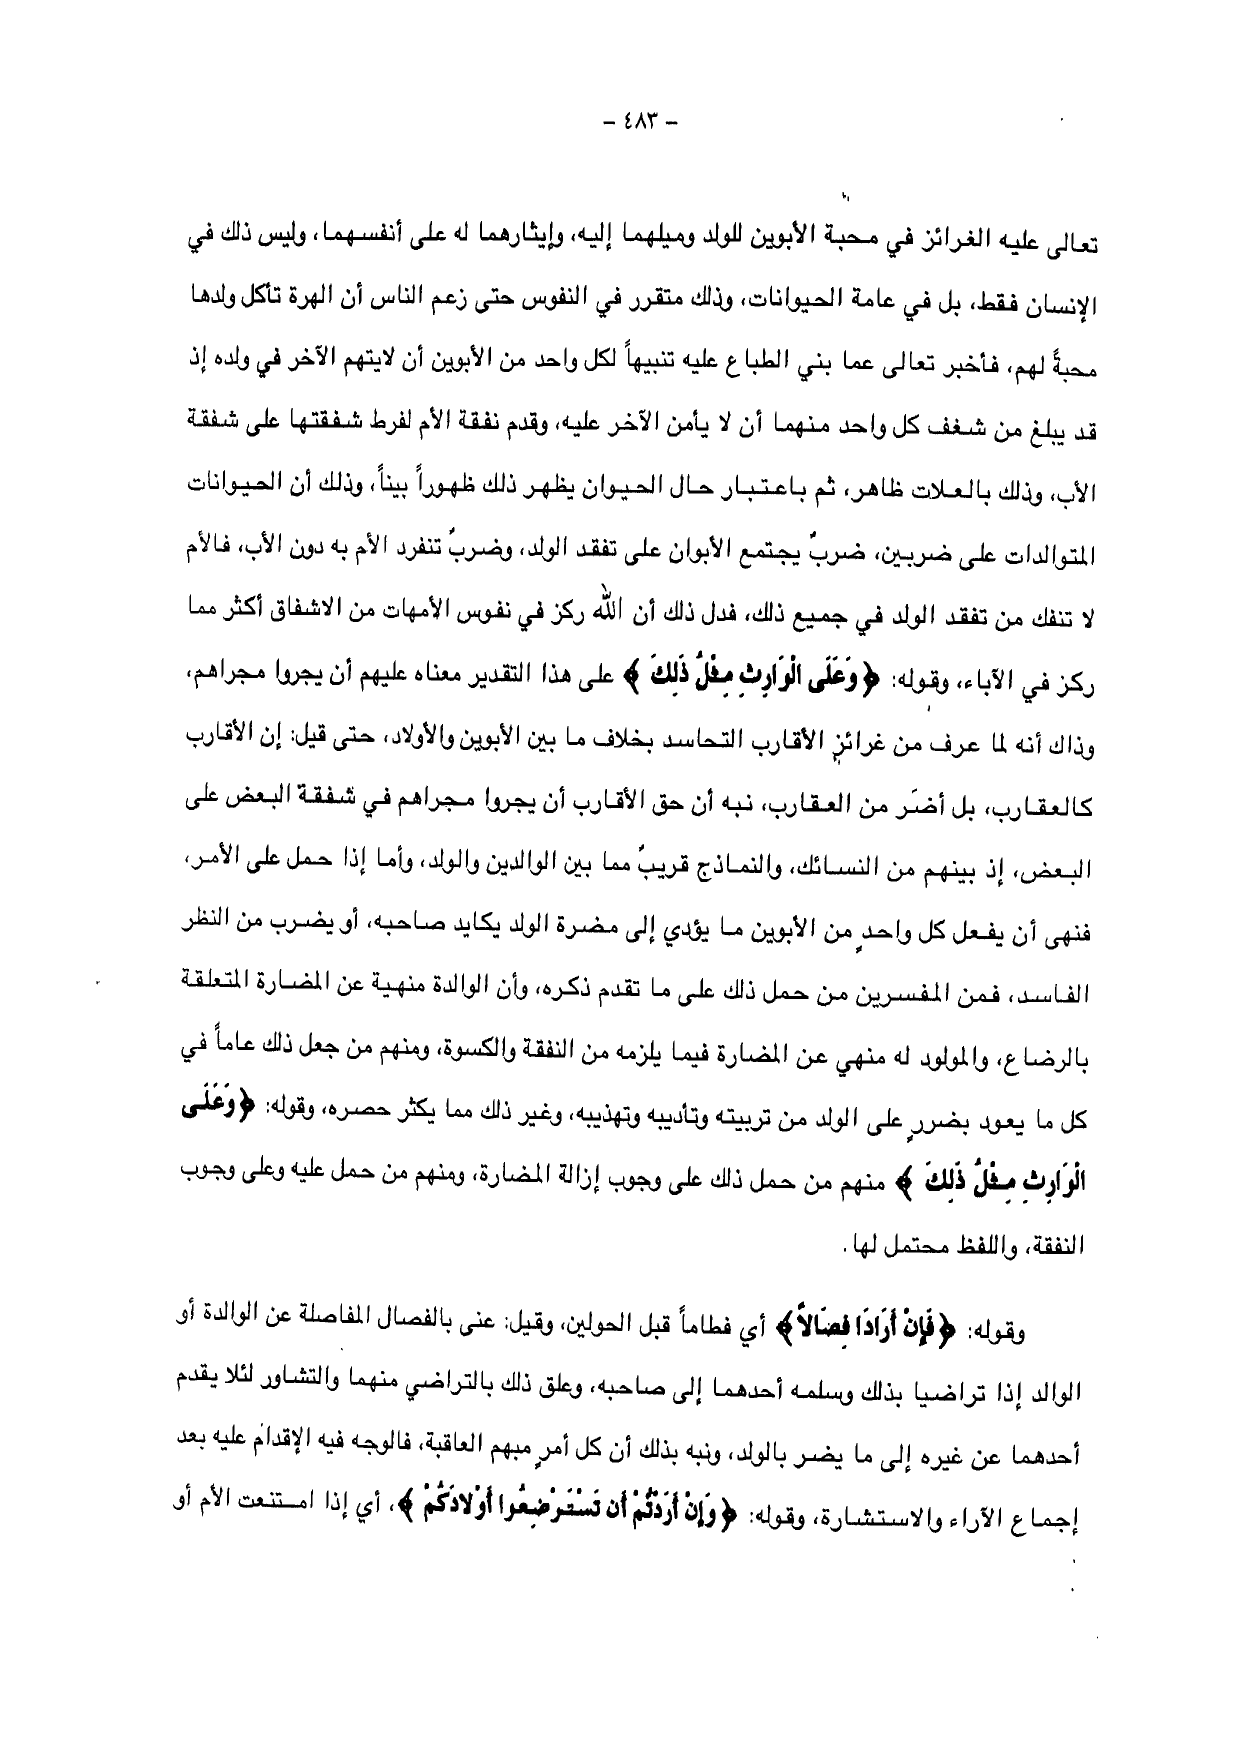 - ٤٨٣ -
تعالى عليه الغرائز في محبة الأبوين للولد وميلهما إليه، وإيثارهما له على أنفسهما، وليس ذلك في
الإنسان فقط، بل في عامة الحيوانات، وذلك متقرر في النفوس حتى زعم الناس أن الهرة تأكل ولدها
محبةً لهم، فأخبر تعالى عما بني الطباع عليه تنبيهاً لكل واحد من الأبوين أن لايتهم الآخر في ولده إذ
قد يبلغ من شغف كل واحد منهما أن لا يأمن الآخر عليه، وقدم نفقة الأم لفرط شفقتها على شفقة
الأب، وذلك بالعلات ظاهر، ثم باعتبار حال الحيوان يظهر ذلك ظهوراً بيناً، وذلك أن الحيوانات
المتوالدات على ضربين، ضربٌ يجتمع الأبوان على تفقد الولد، وضربٌ تنفرد الأم به دون الأب، فالأم
لا تنفك من تفقد الولد في جميع ذلك، فدل ذلك أن الله ركز في نفوس الأمهات من الاشفاق أكثر مما
ركز في الآباء، وقوله: ﴿وَعَلَى الْوَارِثِ مِثْلُ ذَلِكَ﴾ على هذا التقدير معناه عليهم أن يجروا مجراهم،
وذاك أنه لما عرف من غرائزِ الأقارب التحاسد بخلاف ما بين الأبوين والأولاد، حتى قيل: إن الأقارب
كالعقارب، بل أضرّ من العقارب، نبه أن حق الأقارب أن يجروا مجراهم في شفقة البعض على
البعض، إذ بينهم من النسائك، والنماذج قريبٌ مما بين الوالدين والولد، وأما إذا حمل على الأمر،
فنهى أن يفعل كل واحدٍ من الأبوين ما يؤدي إلى مضرة الولد يكايد صاحبه، أو يضرب من النظر
الفاسد، فمن المفسرين من حمل ذلك على ما تقدم ذكره، وأن الوالدة منهية عن المضارة المتعلقة
بالرضاع، والمولود له منهي عن المضارة فيما يلزمه من النفقة والكسوة، ومنهم من جعل ذلك عاماً في
كل ما يعود بضررٍ على الولد من تربيته وتأديبه وتهذيبه، وغير ذلك مما يكثر حصره، وقوله: ﴿وَعَلَى
الْوَارِثِ مِثْلُ ذَلِكَ﴾ منهم من حمل ذلك على وجوب إزالة المضارة، ومنهم من حمل عليه وعلى وجوب
النفقة، واللفظ محتمل لها.
وقوله: ﴿فَإِنْ أَرَادَا فِصَالاً﴾ أي فطاماً قبل الحولين، وقيل: عنى بالفصال المفاصلة عن الوالدة أو
الوالد إذا تراضيا بذلك وسلمه أحدهما إلى صاحبه، وعلق ذلك بالتراضي منهما والتشاور لئلا يقدم
أحدهما عن غيره إلى ما يضر بالولد، ونبه بذلك أن كل أمرٍ مبهم العاقبة، فالوجه فيه الإقدام عليه بعد
إجماع الآراء والاستشارة، وقوله: ﴿وَإِنْ أَرَدْتُمْ أَن تَسْتَرْضِعُوا أَوْلادَكُمْ﴾، أي إذا امتنعت الأم أو